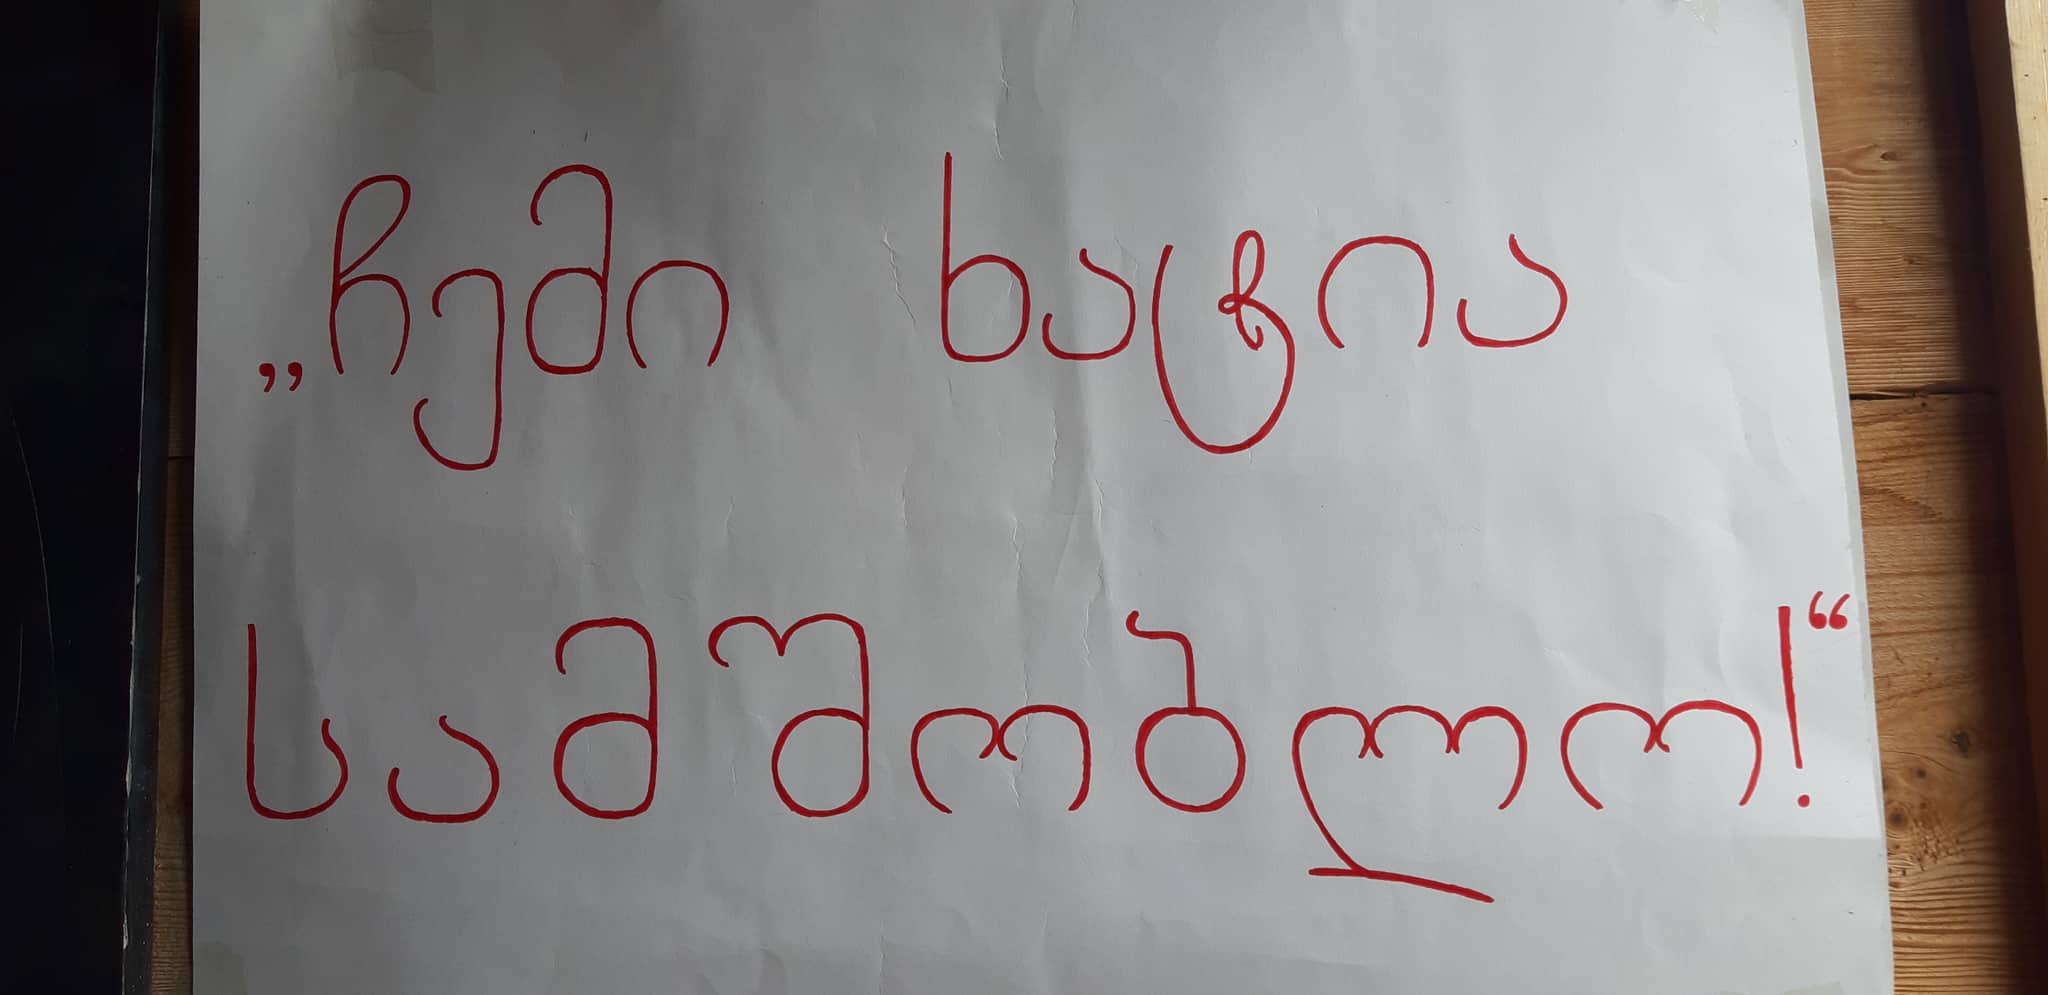 „ჩემი ხატია
სამშობლო!“